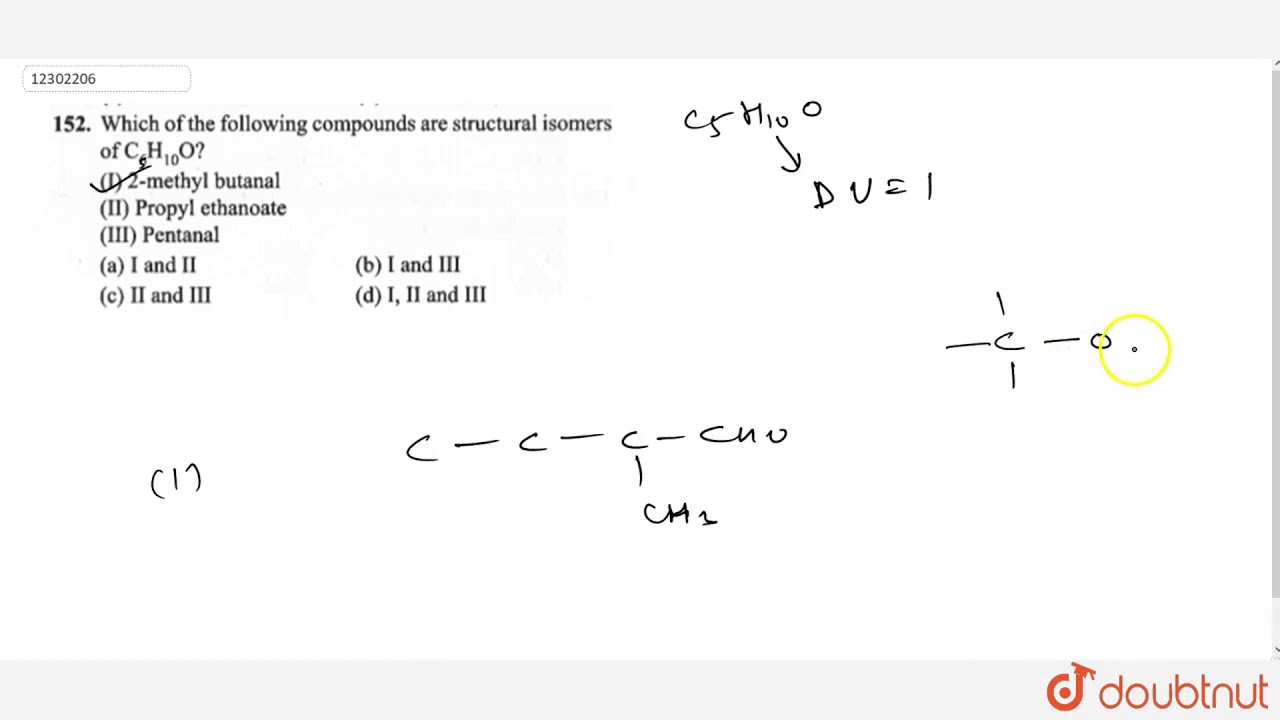 12302206
152. Which of the following compounds are structural isomers
of C5H10O?
(I) 2-methyl butanal
(II) Propyl ethanoate
(III) Pentanal
(a) I and II (b) I and III
(c) II and III (d) I, II and III
C5H10O
DU = 1
— C — O
(1)
C — C — C — CHO
CH3
doubtnut